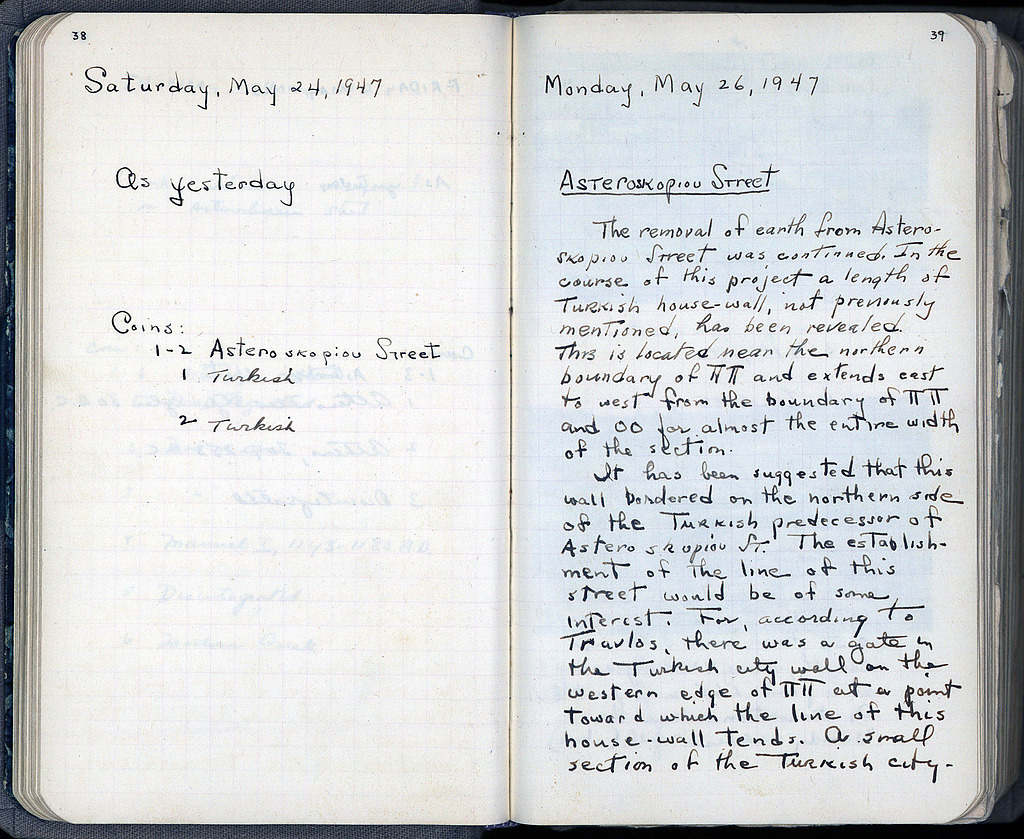 38
Saturday, May 24, 1947
As yesterday
Coins:
1-2 Asteroskopiou Street
1 Turkish
2 Turkish
39
Monday, May 26, 1947
Asteroskopiou Street
The removal of earth from Astero-
skopiou Street was continued. In the
course of this project a length of
Turkish house-wall, not previously
mentioned, has been revealed.
This is located near the northern
boundary of ΠΠ and extends east
to west from the boundary of ΠΠ
and OO for almost the entire width
of the section.
It has been suggested that this
wall bordered on the northern side
of the Turkish predecessor of
Asteroskopiou St. The establish-
ment of the line of this
street would be of some
interest. For, according to
Travlos, there was a gate in
the Turkish city wall on the
western edge of ΠΠ at a point
toward which the line of this
house-wall tends. A small
section of the Turkish city-